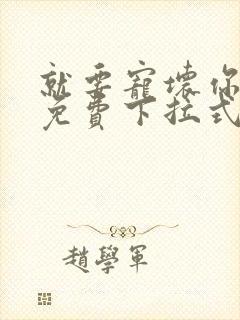 就要寵壞你
免費下拉式
趙學軍